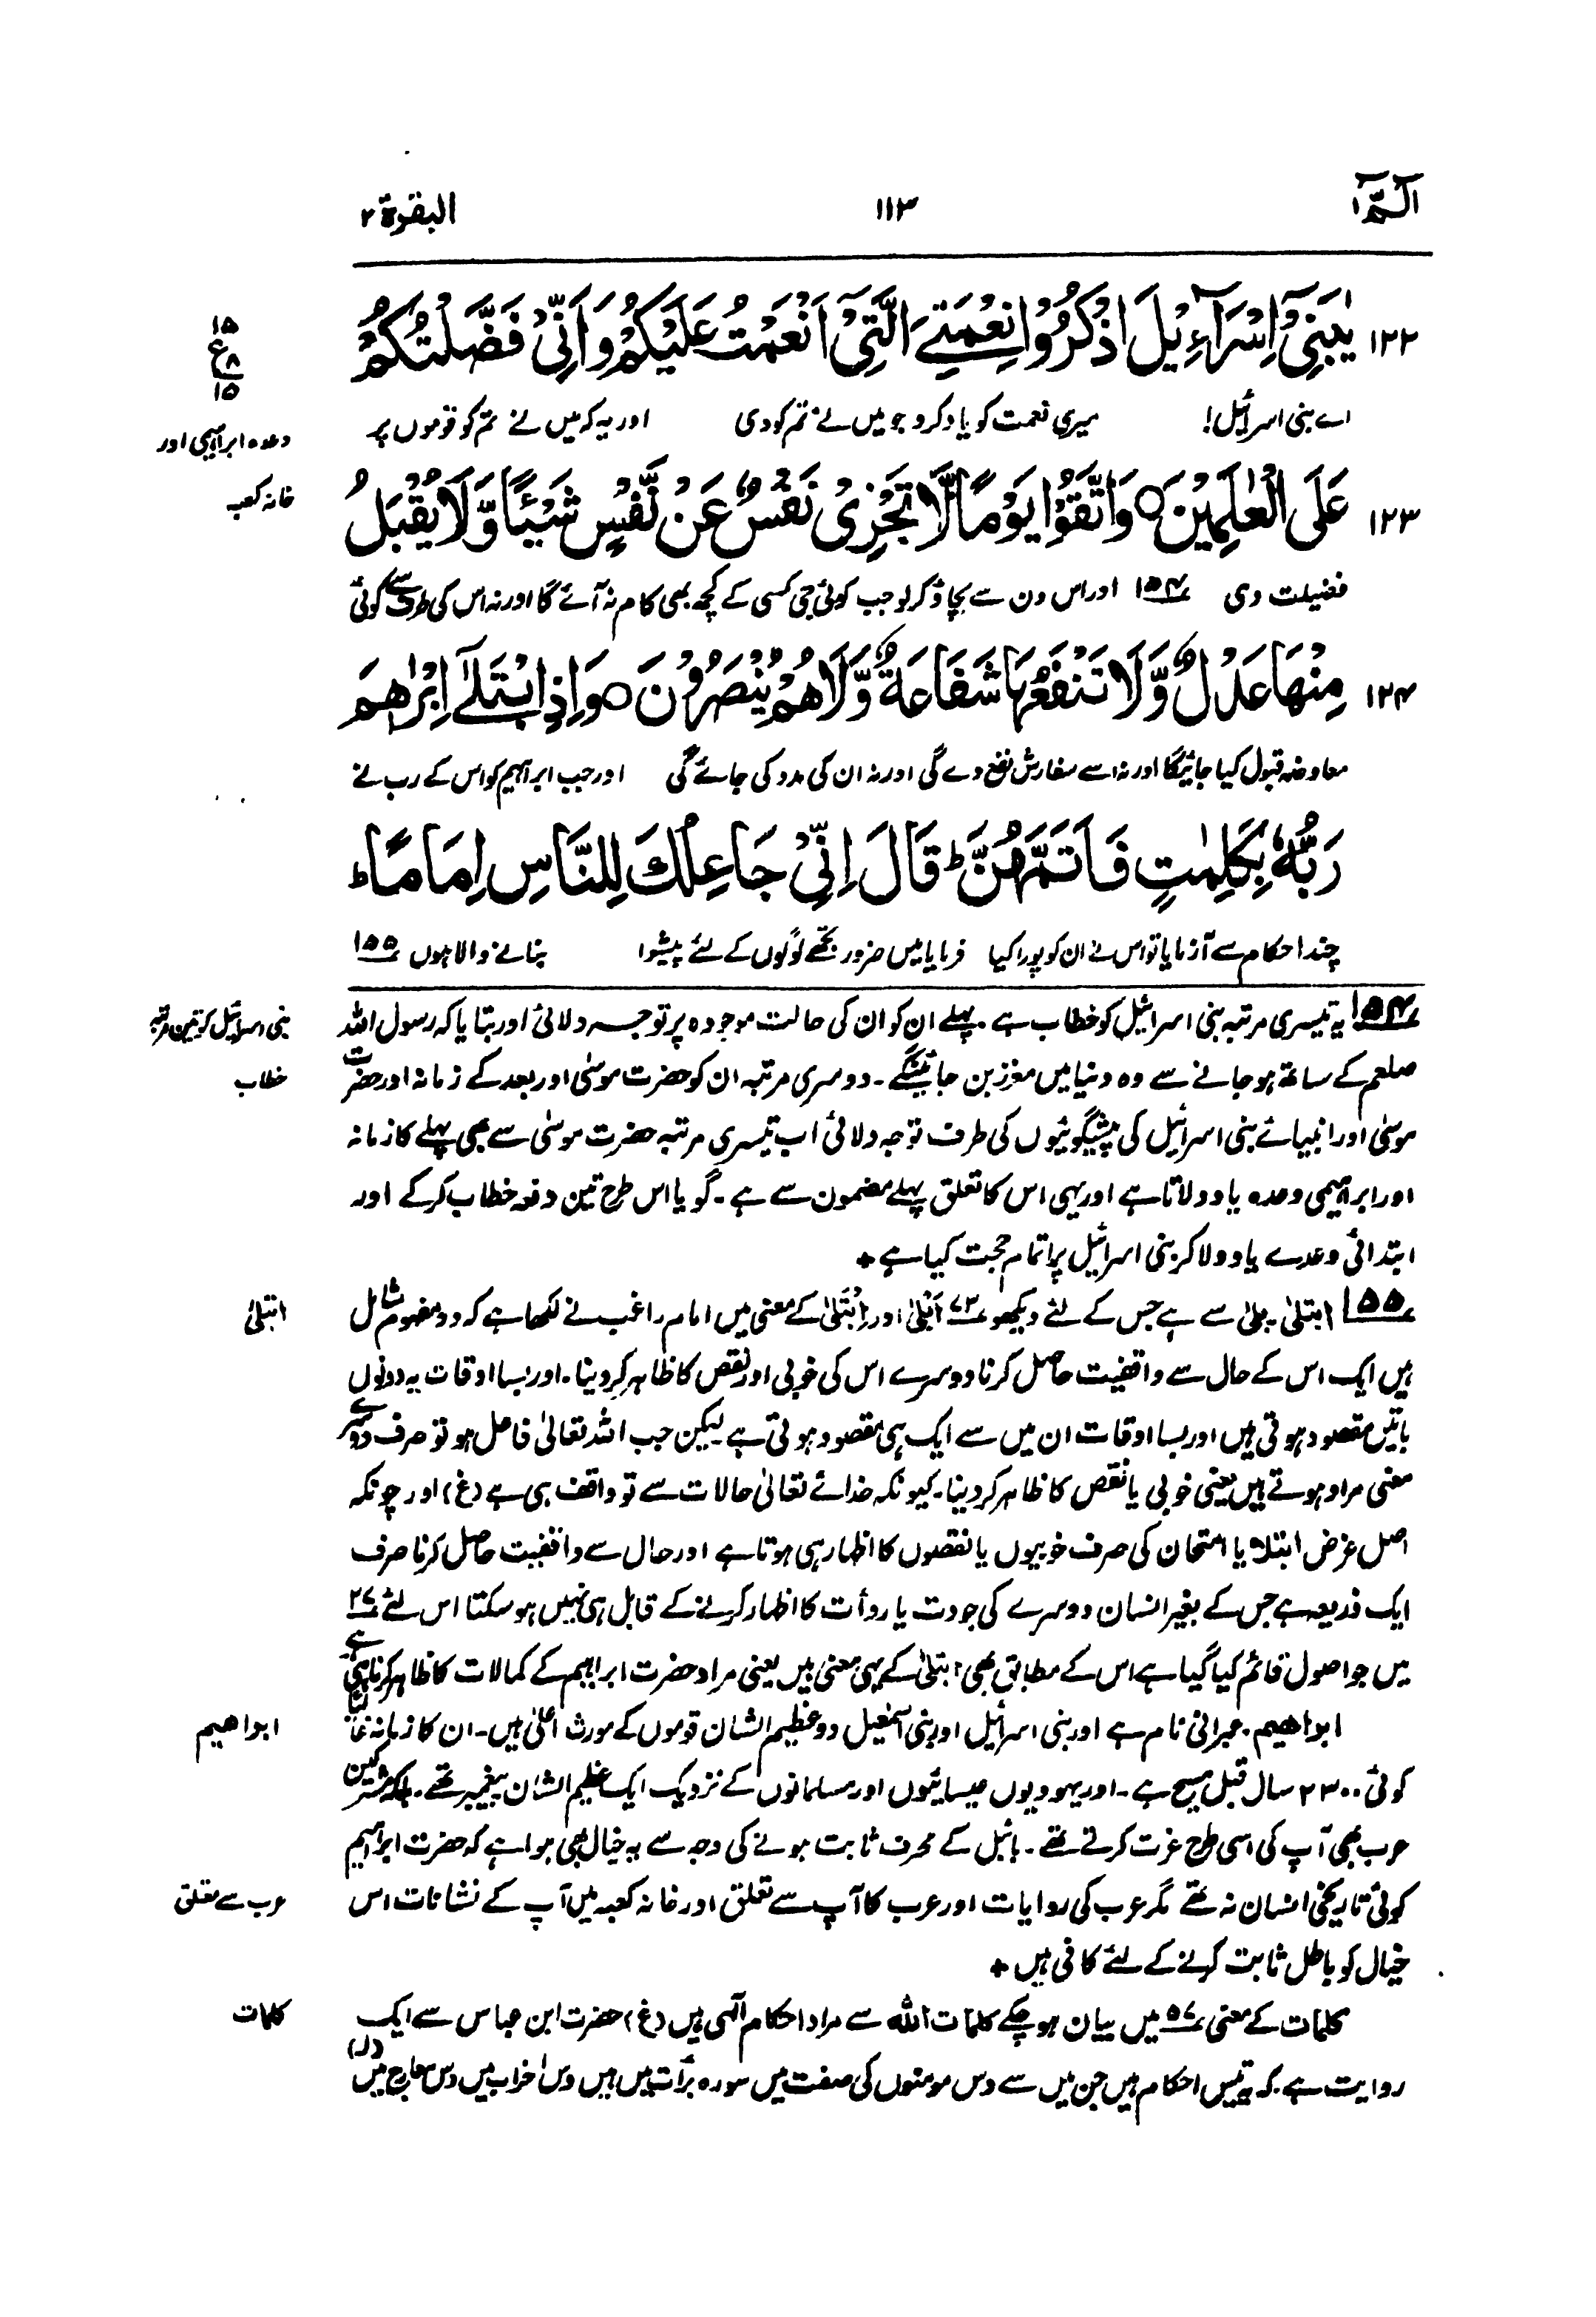 الٓمّٓ ١
١١٣
البقرة ٢
١٢٢ يٰبَنِىْٓ اِسْرَآءِيْلَ اذْكُرُوْا نِعْمَتِىَ الَّتِىْٓ اَنْعَمْتُ عَلَيْكُمْ وَاَنِّىْ فَضَّلْتُكُمْ
١٥
ع ٨
١٥
اے بنی اسرائیل! میری نعمت کو یاد کرو جو میں نے تم کو دی اور یہ کہ میں نے تم کو قوموں پر
وعدہ ابراہیمی اور
١٢٣ عَلَى الْعٰلَمِيْنَ ۝ وَاتَّقُوْا يَوْمًا لَّا تَجْزِىْ نَفْسٌ عَنْ نَّفْسٍ شَيْئًا وَّلَا يُقْبَلُ
خانہ کعبہ
فضیلت دی ١٥٤ اور اس دن سے بچاؤ کر لو جب کوئی جی کسی کے کچھ بھی کام نہ آئے گا اور نہ اس کی طرف سے کوئی
١٢٤ مِنْهَا عَدْلٌ وَّلَا تَنْفَعُهَا شَفَاعَةٌ وَّلَا هُمْ يُنْصَرُوْنَ ۝ وَاِذِ ابْتَلٰٓى اِبْرٰهٖمَ
معاوضہ قبول کیا جائیگا اور نہ اسے سفارش نفع دے گی اور نہ ان کی مدد کی جائے گی اور جب ابراہیم کو اس کے رب نے
رَبُّهٗ بِكَلِمٰتٍ فَاَتَمَّهُنَّ ؕ قَالَ اِنِّىْ جَاعِلُكَ لِلنَّاسِ اِمَامًا ؕ
چند احکام سے آزمایا تو اس نے ان کو پورا کیا فرمایا میں ضرور تجھے لوگوں کے لئے پیشوا بنانے والا ہوں ١٥٥
١٥٤ یہ تیسری مرتبہ بنی اسرائیل کو خطاب ہے۔ پہلے ان کو ان کی حالت موجودہ پر توجہ دلائی اور بتایا کہ رسول اللہ
بنی اسرائیل کو تین مرتبہ
صلعم کے ساتھ ہو جانے سے وہ دنیا میں معزز بن جائینگے۔ دوسری مرتبہ ان کو حضرت موسیٰ اور بعد کے زمانہ اور حضرت
خطاب
موسیٰ اور انبیائے بنی اسرائیل کی پیشگوئیوں کی طرف توجہ دلائی اب تیسری مرتبہ حضرت موسیٰ سے بھی پہلے کا زمانہ
اور ابراہیمی وعدہ یاد دلاتا ہے اور یہی اس کا تعلق پہلے مضمون سے ہے۔ گویا اس طرح تین دفعہ خطاب کر کے اور
ابتدائی وعدے یاد دلا کر بنی اسرائیل پر اتمام حجت کیا ہے +
١٥٥ ابتلیٰ بلیٰ سے ہے جس کے لئے دیکھو ٧٣ اَبْلیٰ اور اِبْتَلیٰ کے معنی میں امام راغب نے لکھا ہے کہ دو مفہوم شامل
ابتلیٰ
ہیں ایک اس کے حال سے واقفیت حاصل کرنا دوسرے اس کی خوبی اور نقص کا ظاہر کر دینا۔ اور بسا اوقات یہ دونوں
باتیں مقصود ہوتی ہیں اور بسا اوقات ان میں سے ایک ہی مقصود ہوتی ہے لیکن جب اللہ تعالیٰ فاعل ہو تو صرف دوسرے
معنی مراد ہوتے ہیں یعنی خوبی یا نقص کا ظاہر کر دینا۔ کیونکہ خدائے تعالیٰ حالات سے تو واقف ہی ہے (غ) اور چونکہ
اصل غرض ابتلاء یا امتحان کی صرف خوبیوں یا نقصوں کا اظہار ہی ہوتا ہے اور حال سے واقفیت حاصل کرنا صرف
ایک ذریعہ ہے جس کے بغیر انسان دوسرے کی جودت یا ردأت کا اظہار کرنے کے قابل ہی نہیں ہو سکتا اس لئے ٢٧
میں جو اصول قائم کیا گیا ہے اس کے مطابق بھی ابتلیٰ کے یہی معنی ہیں یعنی مراد حضرت ابراہیم کے کمالات کا ظاہر کرنا ہی ہے
ابراھیم۔ عبرانی نام ہے اور بنی اسرائیل اور بنی اسمٰعیل دو عظیم الشان قوموں کے مورث اعلیٰ ہیں۔ ان کا زمانہ غالباً
ابراھیم
کوئی ٢٣٠٠ سال قبل مسیح ہے۔ اور یہودیوں عیسائیوں اور مسلمانوں کے نزدیک ایک عظیم الشان پیغمبر تھے۔ بلکہ مشرکین
عرب بھی آپ کی اسی طرح عزت کرتے تھے۔ بائبل کے محرف ثابت ہونے کی وجہ سے یہ خیال بھی ہوا ہے کہ حضرت ابراہیم
کوئی تاریخی انسان نہ تھے مگر عرب کی روایات اور عرب کا آپ سے تعلق اور خانہ کعبہ میں آپ کے نشانات اس
عرب سے تعلق
خیال کو باطل ثابت کرنے کے لئے کافی ہیں +
کلمات کے معنی ٥٧ میں بیان ہو چکے کلمات اللہ سے مراد احکام الٰہی ہیں (غ) حضرت ابن عباس سے ایک
کلمات
روایت ہے کہ یہ تیس احکام ہیں جن میں سے دس مومنوں کی صفت میں سورہ برأت میں ہیں دس احزاب میں دس معارج میں (ر)